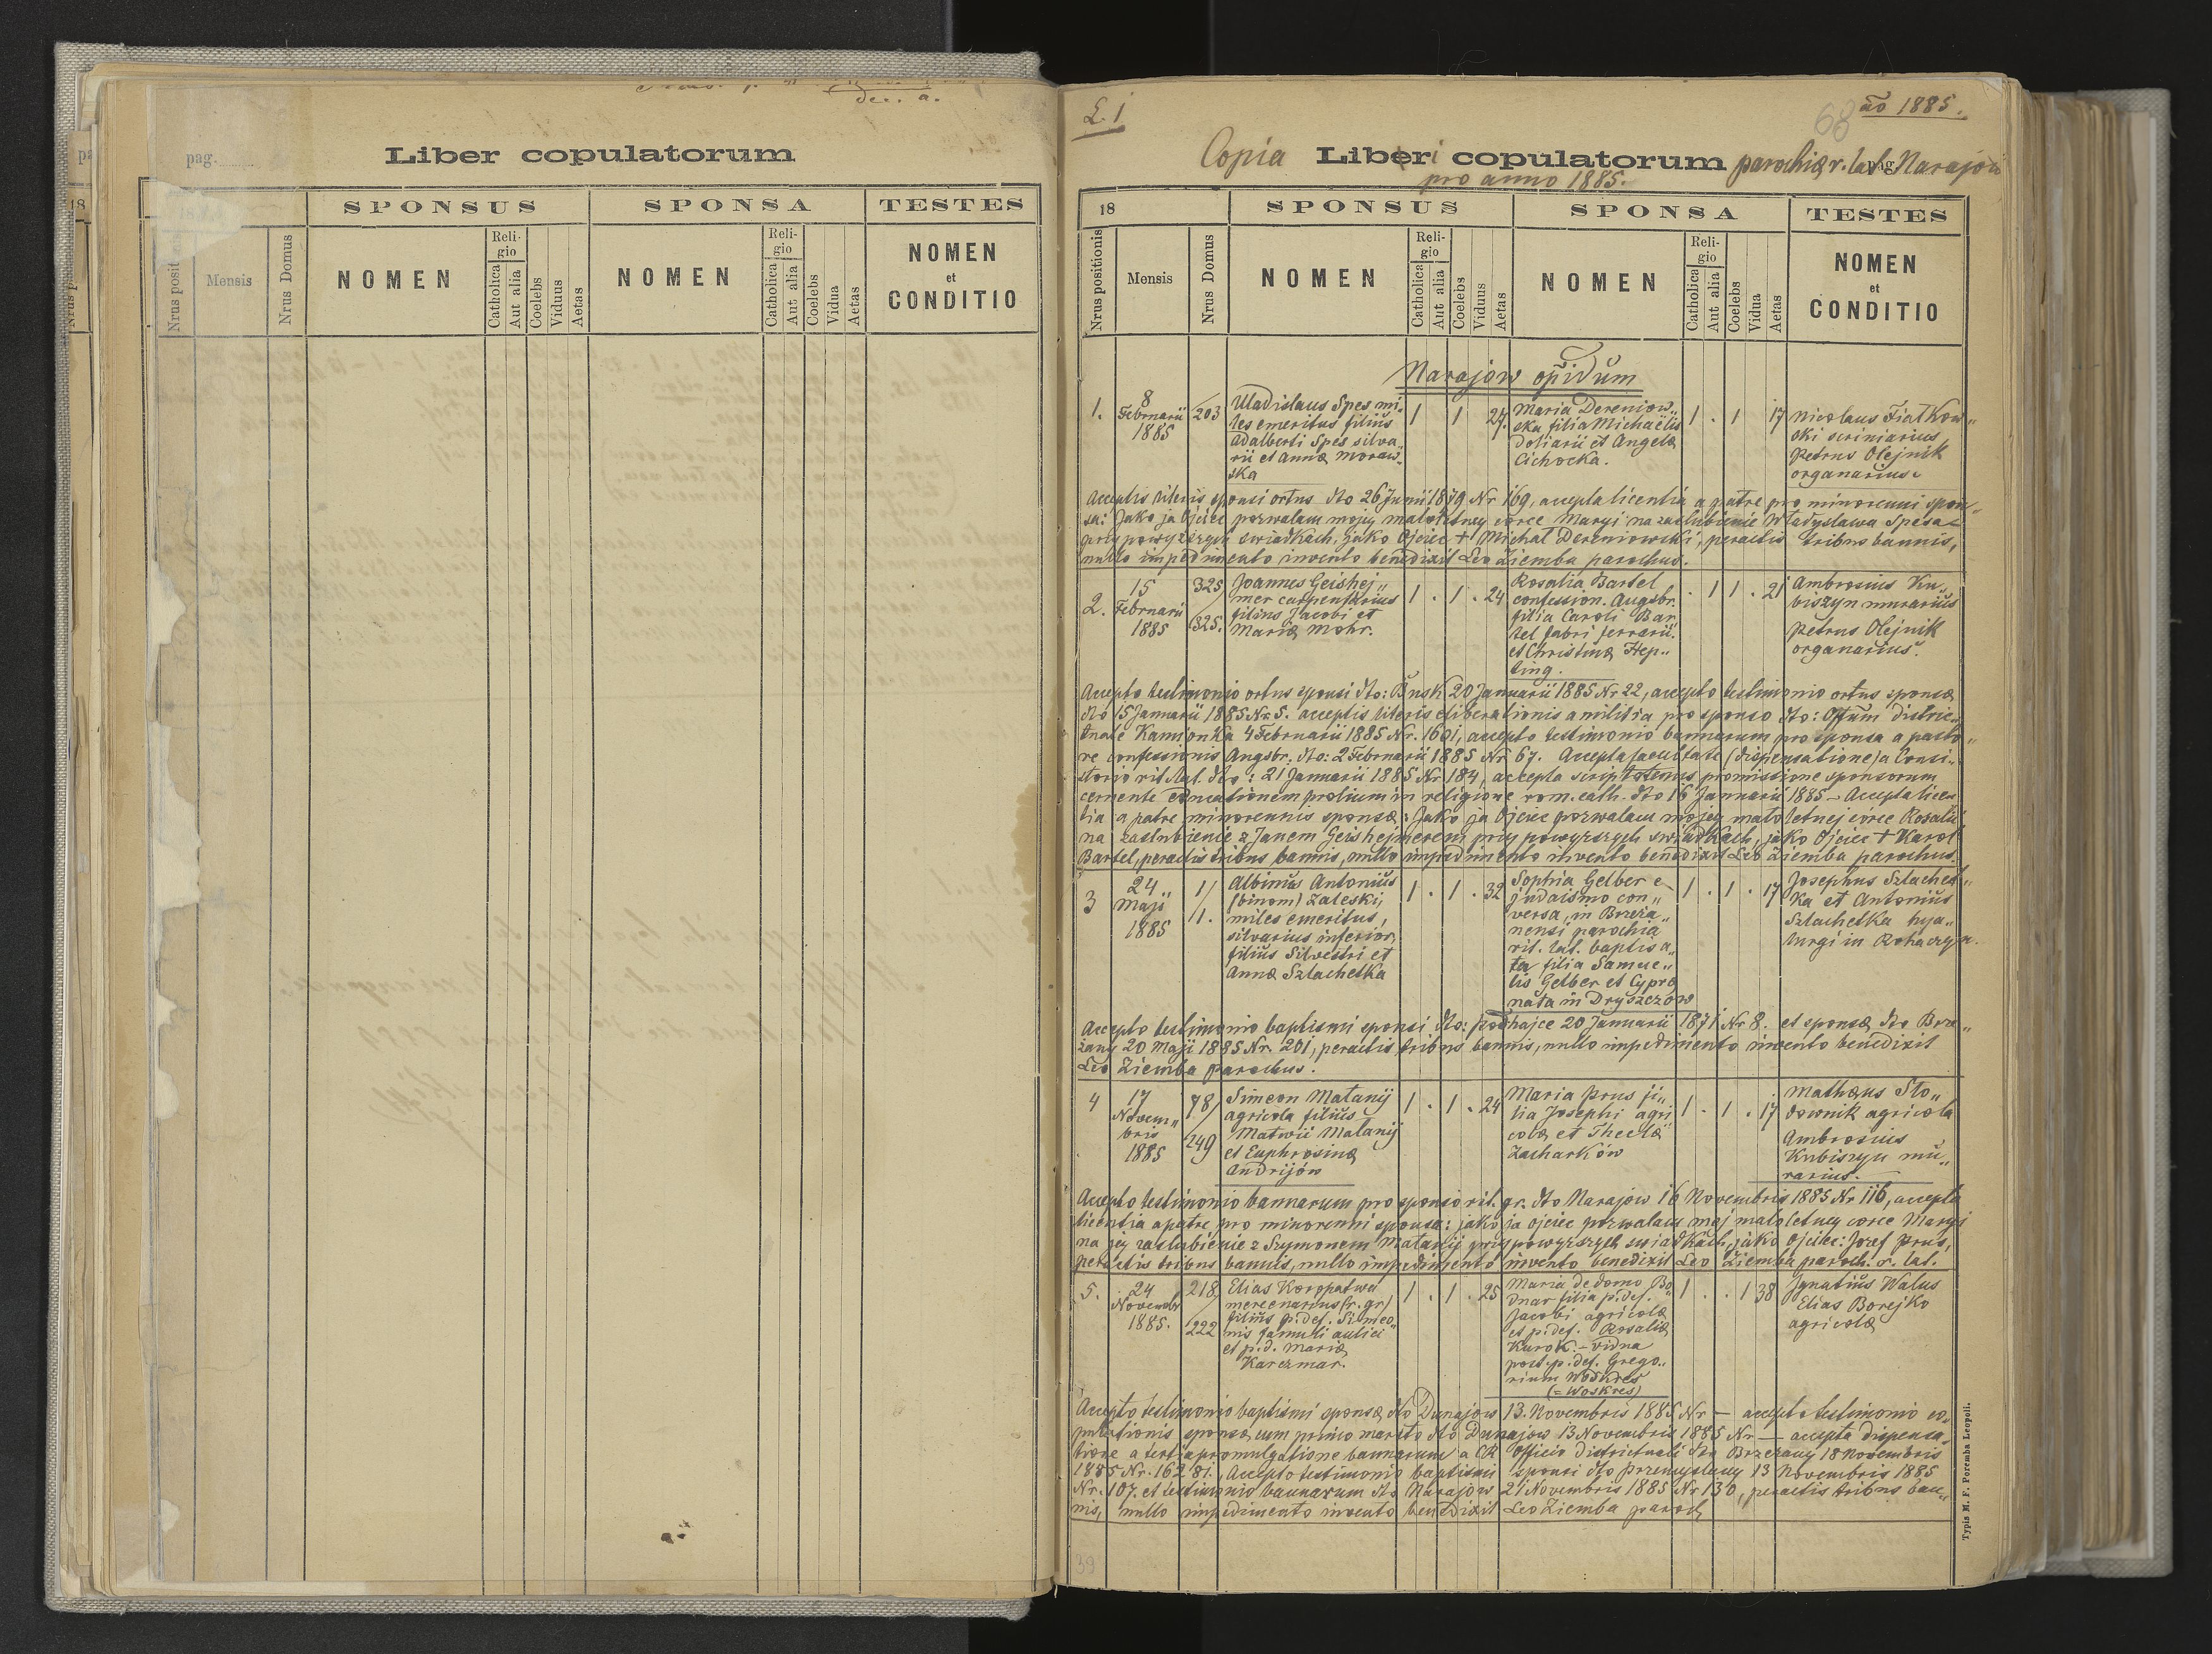 dec. a.
pag.
Liber copulatorum
SPONSUS
SPONSA
TESTES
Nrus posit
Mensis
Nrus Domus
NOMEN
Religio
Catholica
Aut alia
Coelebs
Viduus
Aetas
NOMEN
Religio
Catholica
Aut alia
Coelebs
Vidua
Aetas
NOMEN
et
CONDITIO
L. 1
68
ao 1885.
Copia Liberi copulatorum parochiæ r. lat. Narajów
pag.
pro anno 1885.
18
SPONSUS
SPONSA
TESTES
Nrus positionis
Mensis
Nrus Domus
NOMEN
Religio
Catholica
Aut alia
Coelebs
Viduus
Aetas
NOMEN
Religio
Catholica
Aut alia
Coelebs
Vidua
Aetas
NOMEN
et
CONDITIO
Narajow opidum
1.
8
Februarii
1885
203
Uladislaus Spes mi„
les emeritus filius
Adalberti Spes silva„
rii et Annæ Moraw„
ska
1 1 27.
Maria Dereniow„
ska filia Michaelis
doliarii et Angelæ
Cichocka.
1 . 1 17
Nicolaus Fiatkow„
ski scriniarius
Petrus Olejnik
organarius.
Acceptis literis sponsi ortus dto 26 Junii 1879 Nr 169, accepta licentia a patre pro minorenni spon„
sa: Jako ja Ojciec pozwalam mojej małoletney corce Maryi na zaslubienie Władysława Spesa
przy powyzszych swiadkach, jako Ojciec + Michał Dereniowski, peractis tribus bannis,
nullo impedimento invento benedixit Leo Ziemba parochus.
2.
15
Februarii
1885
325/
325.
Joannes Geishej„
mer carpentarius
filius Jacobi et
Mariæ Mohr.
1 . 1 . 24
Rosalia Bartel
confession. Augsbr.
filia Caroli Bar
tel fabri ferrarii
et Christinæ Hep„
ting.
. 1 1 . 21
Ambrosius Ku„
biszyn murarius
Petrus Olejnik
organarius.
Accepto testimonio ortus sponsi dto: Busk 20 Januarii 1885 Nr 22, accepto testimonio ortus sponsæ
dto 15 Januarii 1885 Nr. 5. acceptis literis eliberationis a militia pro sponso dto: Offum distric„
tuale Kamionka 4 Februarii 1885 Nr. 1601, accepto testimonio bannorum pro sponsa a pasto„
re confessionis Augsbr. dto: 2 Februarii 1885 Nr 67. Accepta facultate (dispensatione) a Consi„
storio rit. lat. dto: 21 Januarii 1885 Nr 184, accepta scriptotenus promissione sponsorum
cernente educationem prolium in religione rom. cath. dto 16 Januarii 1885 - Accepta licen
tia a patre minorennis sponsæ: Jako ja Ojciec pozwalam mojej małoletnej corce Rosalii
na zaslubienie z Janem Geishejmerem przy powyzszych swiadkach, jako Ojciec + Karol
Bartel, peractis tribus bannis, nullo impedimento invento benedixit Leo Ziemba parochus.
3
24„
Maji
1885
1/
11.
Albinus Antonius
(binom) Zaleski,
miles emeritus,
silvarius inferior,
filius Silvestri et
Annæ Szlachetka
1 . 1 . 32
Sophia Gelber e
judaismo con„
versa, in Breza„
nensi parochia
rit. lat. baptisa„
ta filia Samue„
lis Gelber et Cypre
nata in Dryszczów
1 . 1 . 17
Josephus Szlachet„
ka et Antonius
Szlachetka hya„
lurgi in Rohaczyn.
Accepto testimonio baptismi sponsi dto: Podhajce 20 Januarii 1871 Nr 8. et sponsæ dto Brze„
zany 20 Maji 1885 Nr. 201, peractis tribus bannis, nullo impedimento invento benedixit
Leo Ziemba parochus.
4
17
Novem„
bris
1885
78/
249
Simeon Matanij
agricola filius
Matwii Matanij
et Euphrosinæ
Andrijów
1 . 1 . 24
Maria Prus fi„
lia Josephi agri
colæ et Theclæ
Zacharków
1 . 1 . 17
Mathæus Sto„
downik agricola
Ambrosius
Kubiszyn mu„
rarius.
Accepto testimonio bannorum pro sponso rit. gr. dto Narajow 16 Novembris 1885 Nr 116, accepta
licentia a patre pro minorenni sponsa: jako ja ojciec pozwalam mej małoletney corce Maryi
na jej zaslubienie z Szymonem Matanij przy powyzszych swiadkach, jako Ojciec: Jozef Prus,
peractis tribus bannis, nullo impedimento invento benedixit Leo Ziemba paroch. r. lat.
5.
24
Novembr
1885.
218/
222
Elias Koropatwa
mercenarius (r. gr.)
filius p. def. Simeo„
nis famuli aulici
et p. d. Mariæ
Karczmar.
1 . 1 . 25
Maria de domo Bo
dnar filia p. def.
Jacobi agricolæ
et p. def. Rosaliæ
Kurok. - vidua
post. p. def. Grego„
rium Woskres
(= Woskres)
1 . . 1 38
Ignatius Walus
Elias Borejko
agricolæ
Accepto testimonio baptismi sponsæ dto Dunajow 13. Novembris 1885 Nr — accepto testimonio co„
pulationis sponsæ cum primo marito dto Dunajow 13 Novembris 1885 Nr — accepta dispensa„
tione a tertia promulgatione bannorum a CR Officio districtuali dto Brzezany 18 Novembris
1885 Nr. 16281. Accepto testimonio baptismi sponsi dto Przemyslany 13 Novembris 1885
Nr. 107. et testimonio bannorum dto Narajow 21 Novembris 1885 Nr 130, peractis tribus ban„
nis, nullo impedimento invento benedixit Leo Ziemba paroch
39
Typis M. F. Poremba Leopoli.